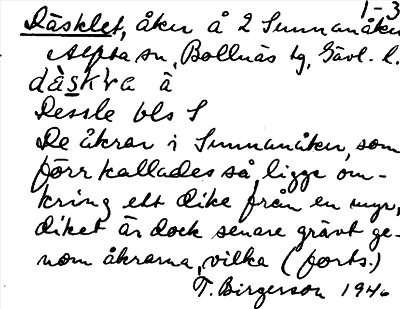 1-3
Däsklet, åker å 2 Sunnanåker
Alfta sn, Bollnäs tg, Gävl. l.
dàskra å
Dessle bls S
De åkrar i Sunnanåker, som
förr kallades så, ligge om-
kring ett dike från en myr,
diket är dock senare grävt ge-
nom åkrarna, vilka (forts.)
T. Birgerson 1946